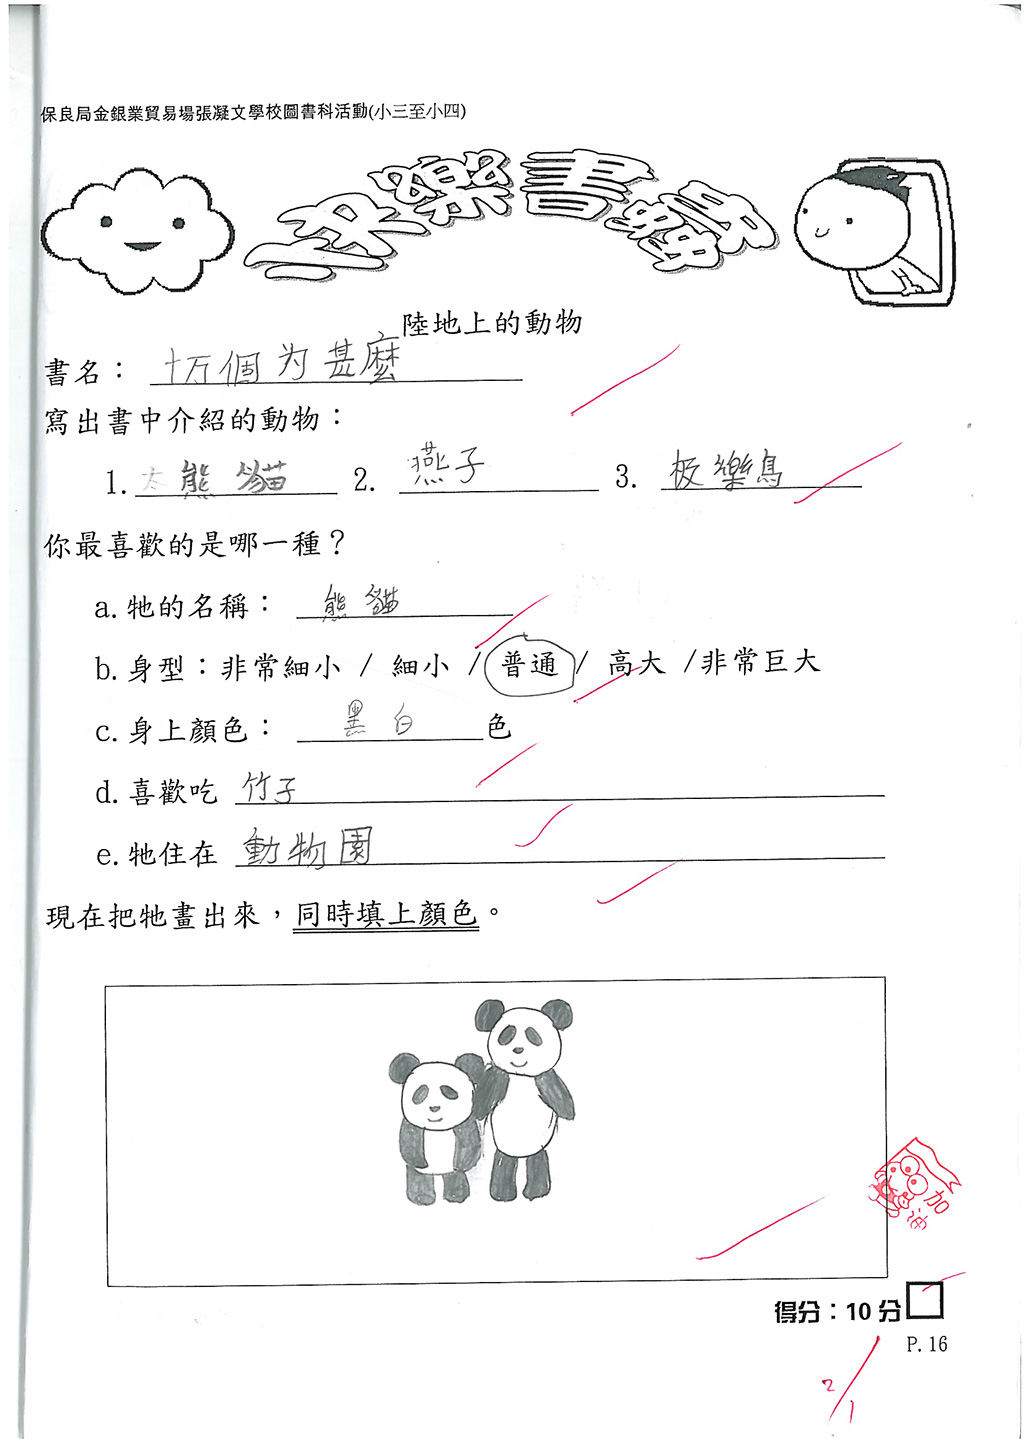 保良局金銀業貿易場張凝文學校圖書科活動(小三至小四)
樂書蟲
陸地上的動物
書名： 十万個为甚麼
寫出書中介紹的動物：
1. 大熊貓 2. 燕子 3. 极樂鳥
你最喜歡的是哪一種？
a. 牠的名稱： 熊貓
b. 身型：非常細小 / 細小 / 普通 / 高大 /非常巨大
c. 身上顏色： 黑白 色
d. 喜歡吃 竹子
e. 牠住在 動物園
現在把牠畫出來，同時填上顏色。
加油
得分：10 分
P. 16
2/1